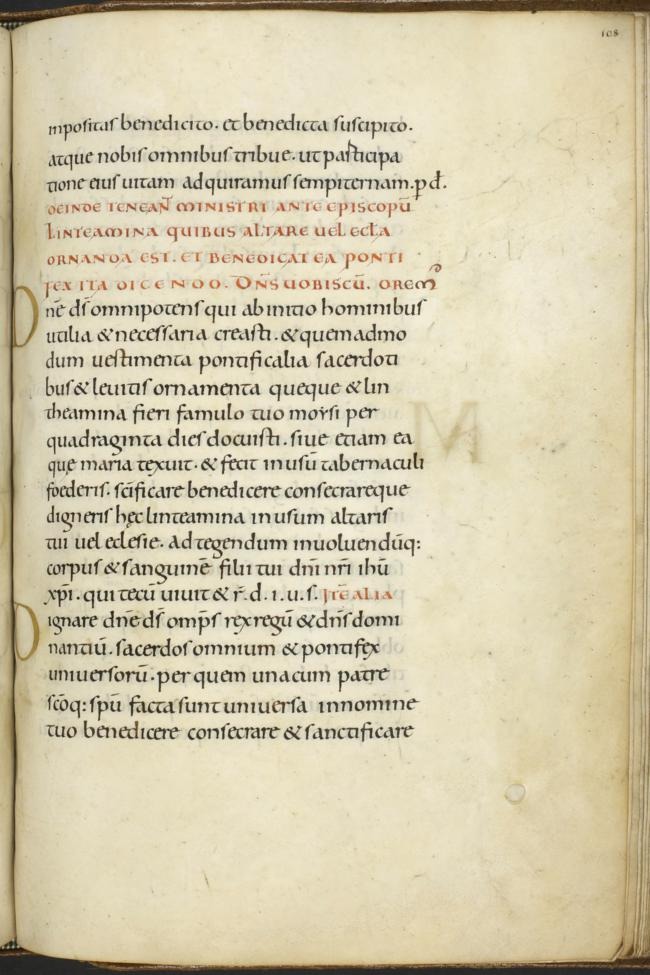 108
inpositas benedicito. et benedicta suscipito.
atque nobis omnibus tribue. ut participa
tione eius uitam adquiramus sempiternam. p̄ d̄.
DEINDE TENEAN̄ MINISTRI ANTE EPISCOPŪ
LINTEAMINA QUIBUS ALTARE UEL ECL̄A
ORNANDA EST. ET BENEDICAT EA PONTI
FEX ITA DICENDO. DN̄S UOBISCŪ. OREM̄
Dn̄e ds̄ omnipotens qui ab initio hominibus
utilia & necessaria creasti. & quemadmo
dum uestimenta pontificalia sacerdoti
bus & leuitis ornamenta queque & lin
theamina fieri famulo tuo moysi per
quadraginta dies docuisti. siue etiam ea
quę maria texuit. & fecit in usū tabernaculi
foederis. sc̄ificare benedicere consecrareque
digneris hęc linteamina in usum altaris
tui uel eclesie. ad tegendum inuoluendūq:
corpus & sanguinē filii tui dn̄i nr̄i ihū
xp̄i. qui tecū uiuit & r̄. d. i. u. s. ITĒ ALIA
Dignare dn̄e ds̄ omp̄s rex regū & dn̄s domi
nantiū. sacerdos omnium & pontifex
uniuersorū. per quem una cum patre
sc̄oq: spū facta sunt uniuersa in nomine
tuo benedicere consecrare & sanctificare